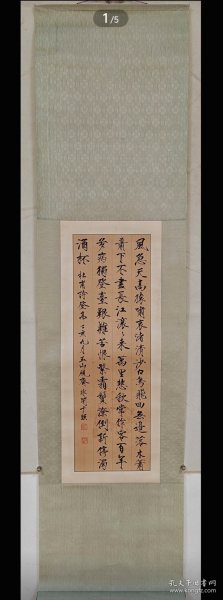 1/5
風急天高猿嘯哀渚清沙白鳥飛回無邊落木蕭
蕭下不盡長江衮々来萬里悲秋常作客百年
多病獨登臺艱難苦恨繁霜鬢潦倒新停濁
酒杯 杜甫詩登高 九月
孔夫子旧书网